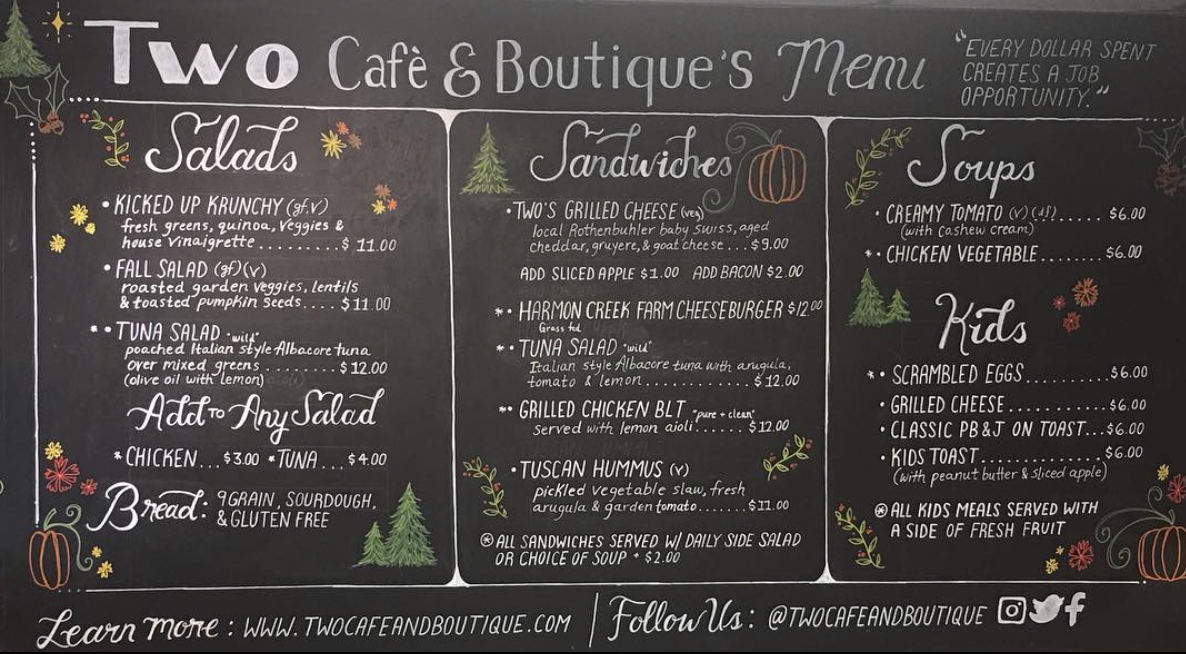 Two Cafè & Boutique's Menu
"EVERY DOLLAR SPENT
CREATES A JOB
OPPORTUNITY."
Salads
• KICKED UP KRUNCHY (gf.v)
fresh greens, quinoa, veggies &
house vinaigrette .......... $ 11.00
• FALL SALAD (gf)(v)
roasted garden veggies, lentils
& toasted pumpkin seeds.... $ 11.00
*• TUNA SALAD "wild"
poached Italian style Albacore tuna
over mixed greens ......... $ 12.00
(olive oil with lemon)
Add To Any Salad
* CHICKEN... $3.00 * TUNA... $4.00
Bread: 9 GRAIN, SOURDOUGH,
& GLUTEN FREE
Sandwiches
• TWO'S GRILLED CHEESE (veg)
local Rothenbuhler baby swiss, aged
cheddar, gruyere, & goat cheese ... $9.00
ADD SLICED APPLE $1.00 ADD BACON $2.00
*• HARMON CREEK FARM CHEESEBURGER $12.00
Grass fed
*• TUNA SALAD "wild"
Italian style Albacore tuna with arugula,
tomato & lemon ............. $ 12.00
*• GRILLED CHICKEN BLT "pure + clean"
served with lemon aioli...... $12.00
• TUSCAN HUMMUS (v)
pickled vegetable slaw, fresh
arugula & garden tomato....... $11.00
⊛ ALL SANDWICHES SERVED W/ DAILY SIDE SALAD
OR CHOICE OF SOUP + $2.00
Soups
• CREAMY TOMATO (v) (gf)...... $6.00
(with cashew cream)
*• CHICKEN VEGETABLE........ $6.00
Kids
*• SCRAMBLED EGGS.......... $6.00
• GRILLED CHEESE ........... $6.00
• CLASSIC PB&J ON TOAST... $6.00
• KIDS TOAST ............... $6.00
(with peanut butter & sliced apple)
⊛ ALL KIDS MEALS SERVED WITH
A SIDE OF FRESH FRUIT
Learn more: WWW.TWOCAFEANDBOUTIQUE.COM
Follow Us: @TWOCAFEANDBOUTIQUE